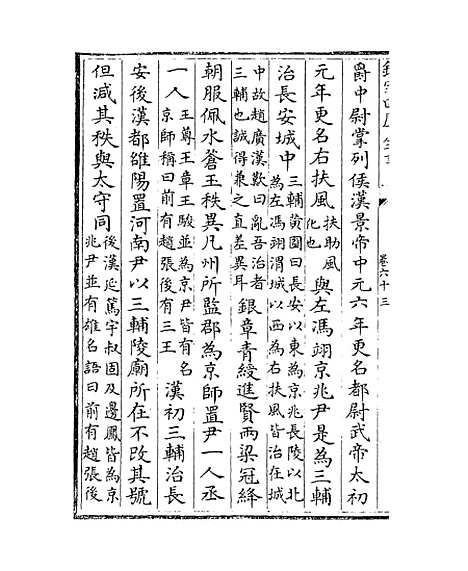 卷六十三
爵中尉掌列侯漢景帝中元六年更名都尉武帝太初
元年更名右扶風扶助風化也與左馮翊京兆尹是為三輔
治長安城中三輔黃圖曰長安以東為京兆長陵以北為左馮翊渭城以西為右扶風皆治在城
中故趙廣漢歎曰亂吾治者三輔也誠得兼之直差異耳銀章青綬進賢兩梁冠絳
朝服佩水蒼王秩異凡州所監郡為京師置尹一人丞
一人王尊王章王駿並為京尹皆有名京師稱曰前有趙張後有三王漢初三輔治長
安後漢都雒陽置河南尹以三輔陵廟所在不改其號
但減其秩與太守同後漢延篤字叔固及邊鳳皆為京兆尹並有雄名語曰前有趙張後